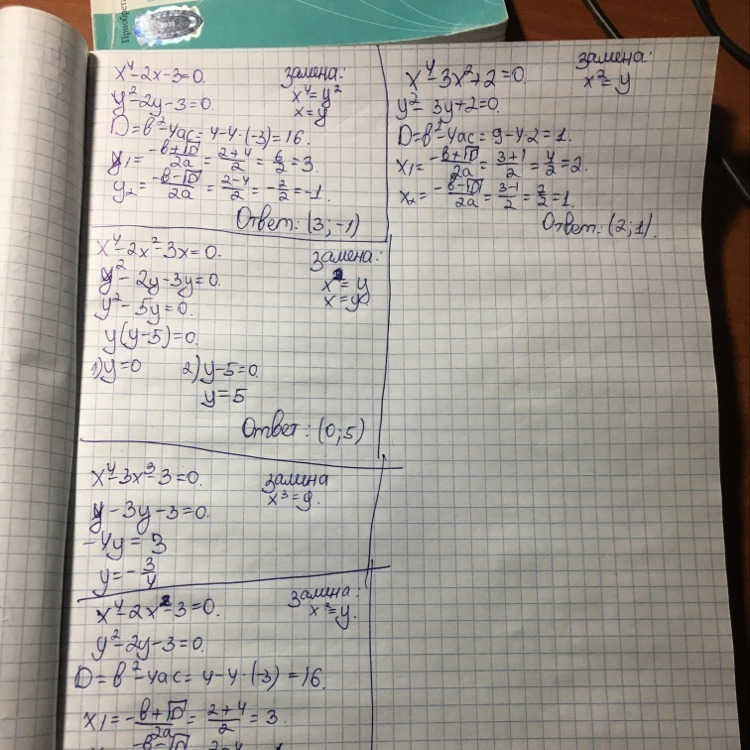 Приобрета
x⁴-2x-3=0. замена:
x⁴=y²
y²-2y-3=0. x=y
D=b²-4ac=4-4·(-3)=16.
y₁=(-b+√D)/2a=(2+4)/2=6/2=3.
y₂=(-b-√D)/2a=(2-4)/2=-2/2=-1.
Ответ: (3;-1)
x⁴-2x²-3x=0. замена:
y²-2y-3y=0. x²=y
y²-5y=0. x=y
y(y-5)=0.
1) y=0 2) y-5=0
y=5
Ответ: (0;5)
x⁴-3x³-3=0. замена
x³=y.
y-3y-3=0.
-4y=3
y=-3/4
x⁴-2x²-3=0. замена:
x²=y.
y²-2y-3=0.
D=b²-4ac=4-4·(-3)=16.
x₁=(-b+√D)/2a=(2+4)/2=3.
замена:
x⁴-3x²+2=0. x²=y
y²-3y+2=0.
D=b²-4ac=9-4·2=1.
x₁=(-b+√D)/2a=(3+1)/2=4/2=2.
x₂=(-b-√D)/2a=(3-1)/2=2/2=1.
Ответ: (2;1).